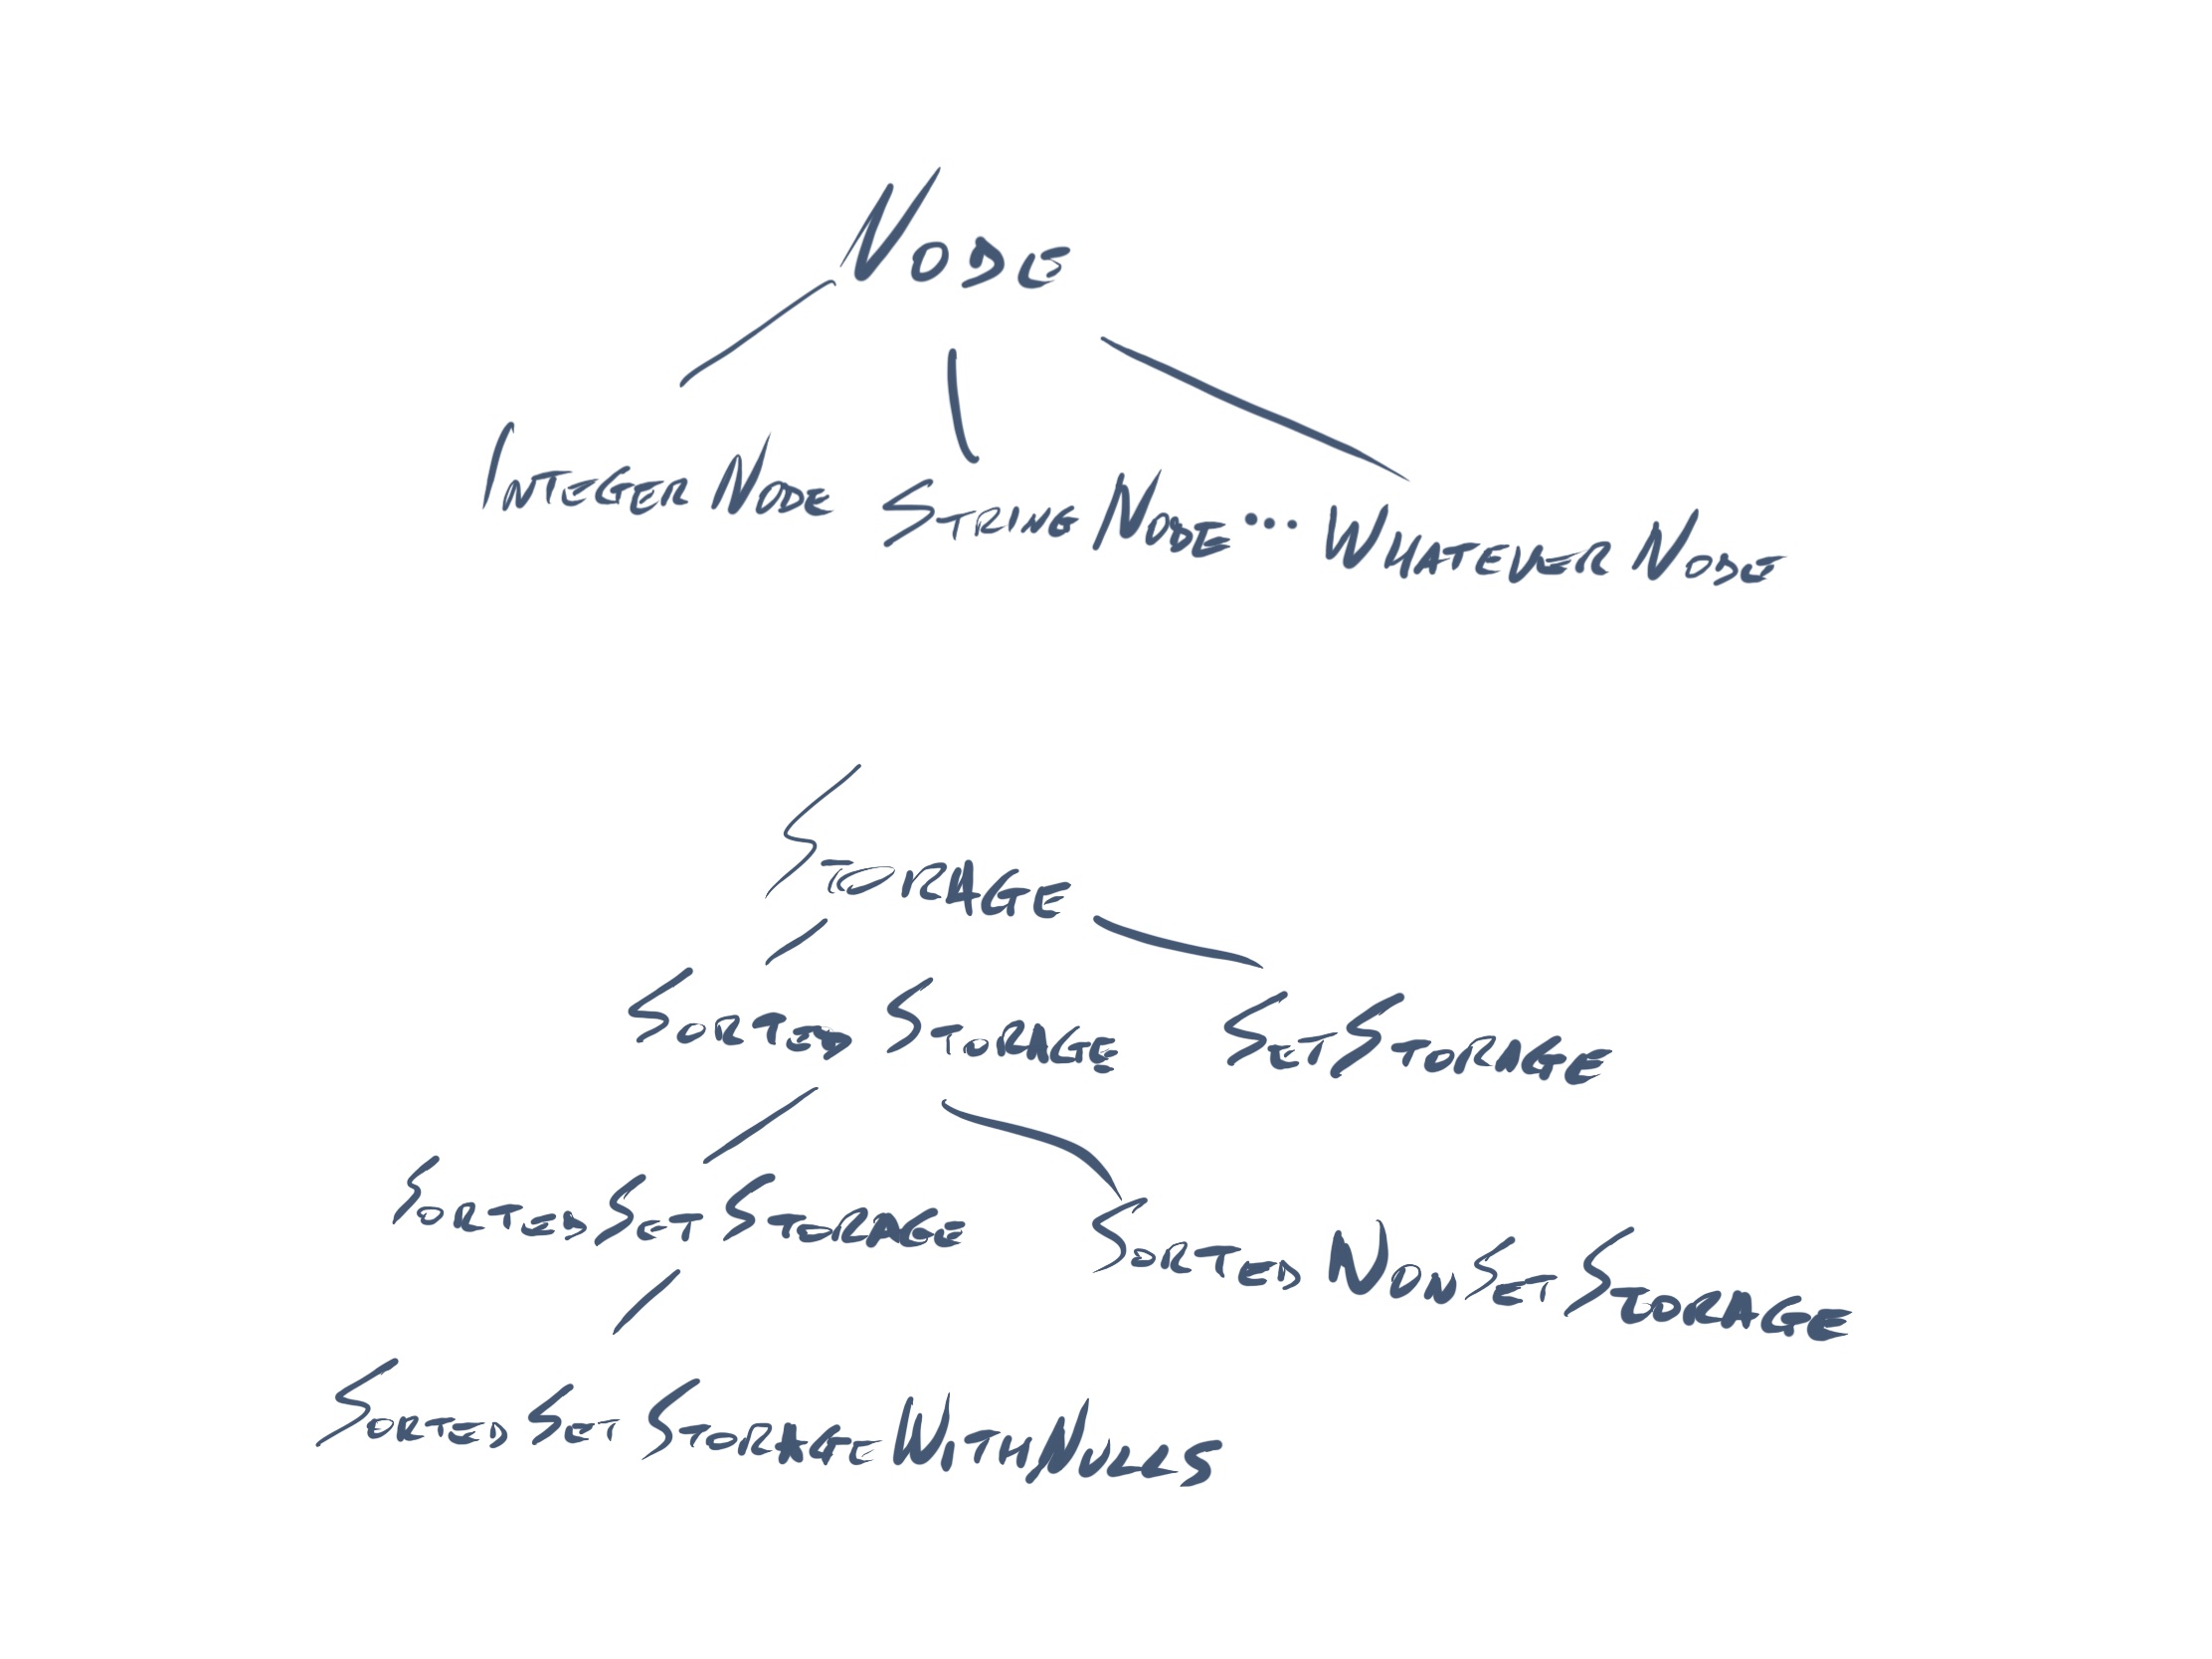 Node
IntegerNode StringNode ... WhateverNode
Storage
SortedStorage SetStorage
SortedSetStorage SortedNonSetStorage
SortedSetStorageWithNulls